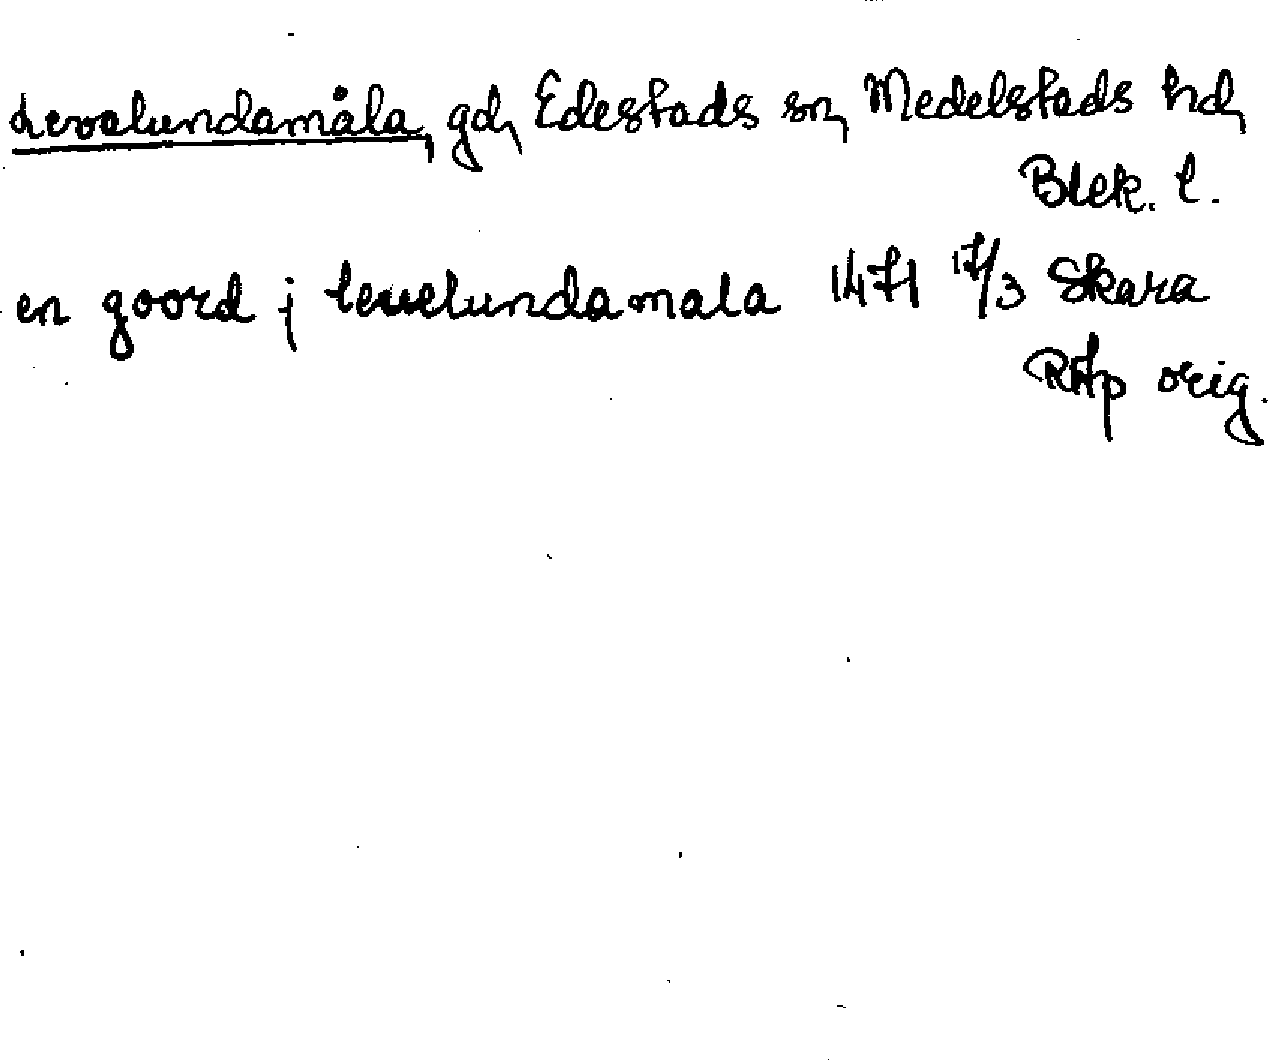 Levalundamåla, gd, Edestads sn, Medelstads hd,
Blek. l.
en goord j leuelundamala 1471 17/3 Skara
RAp orig.